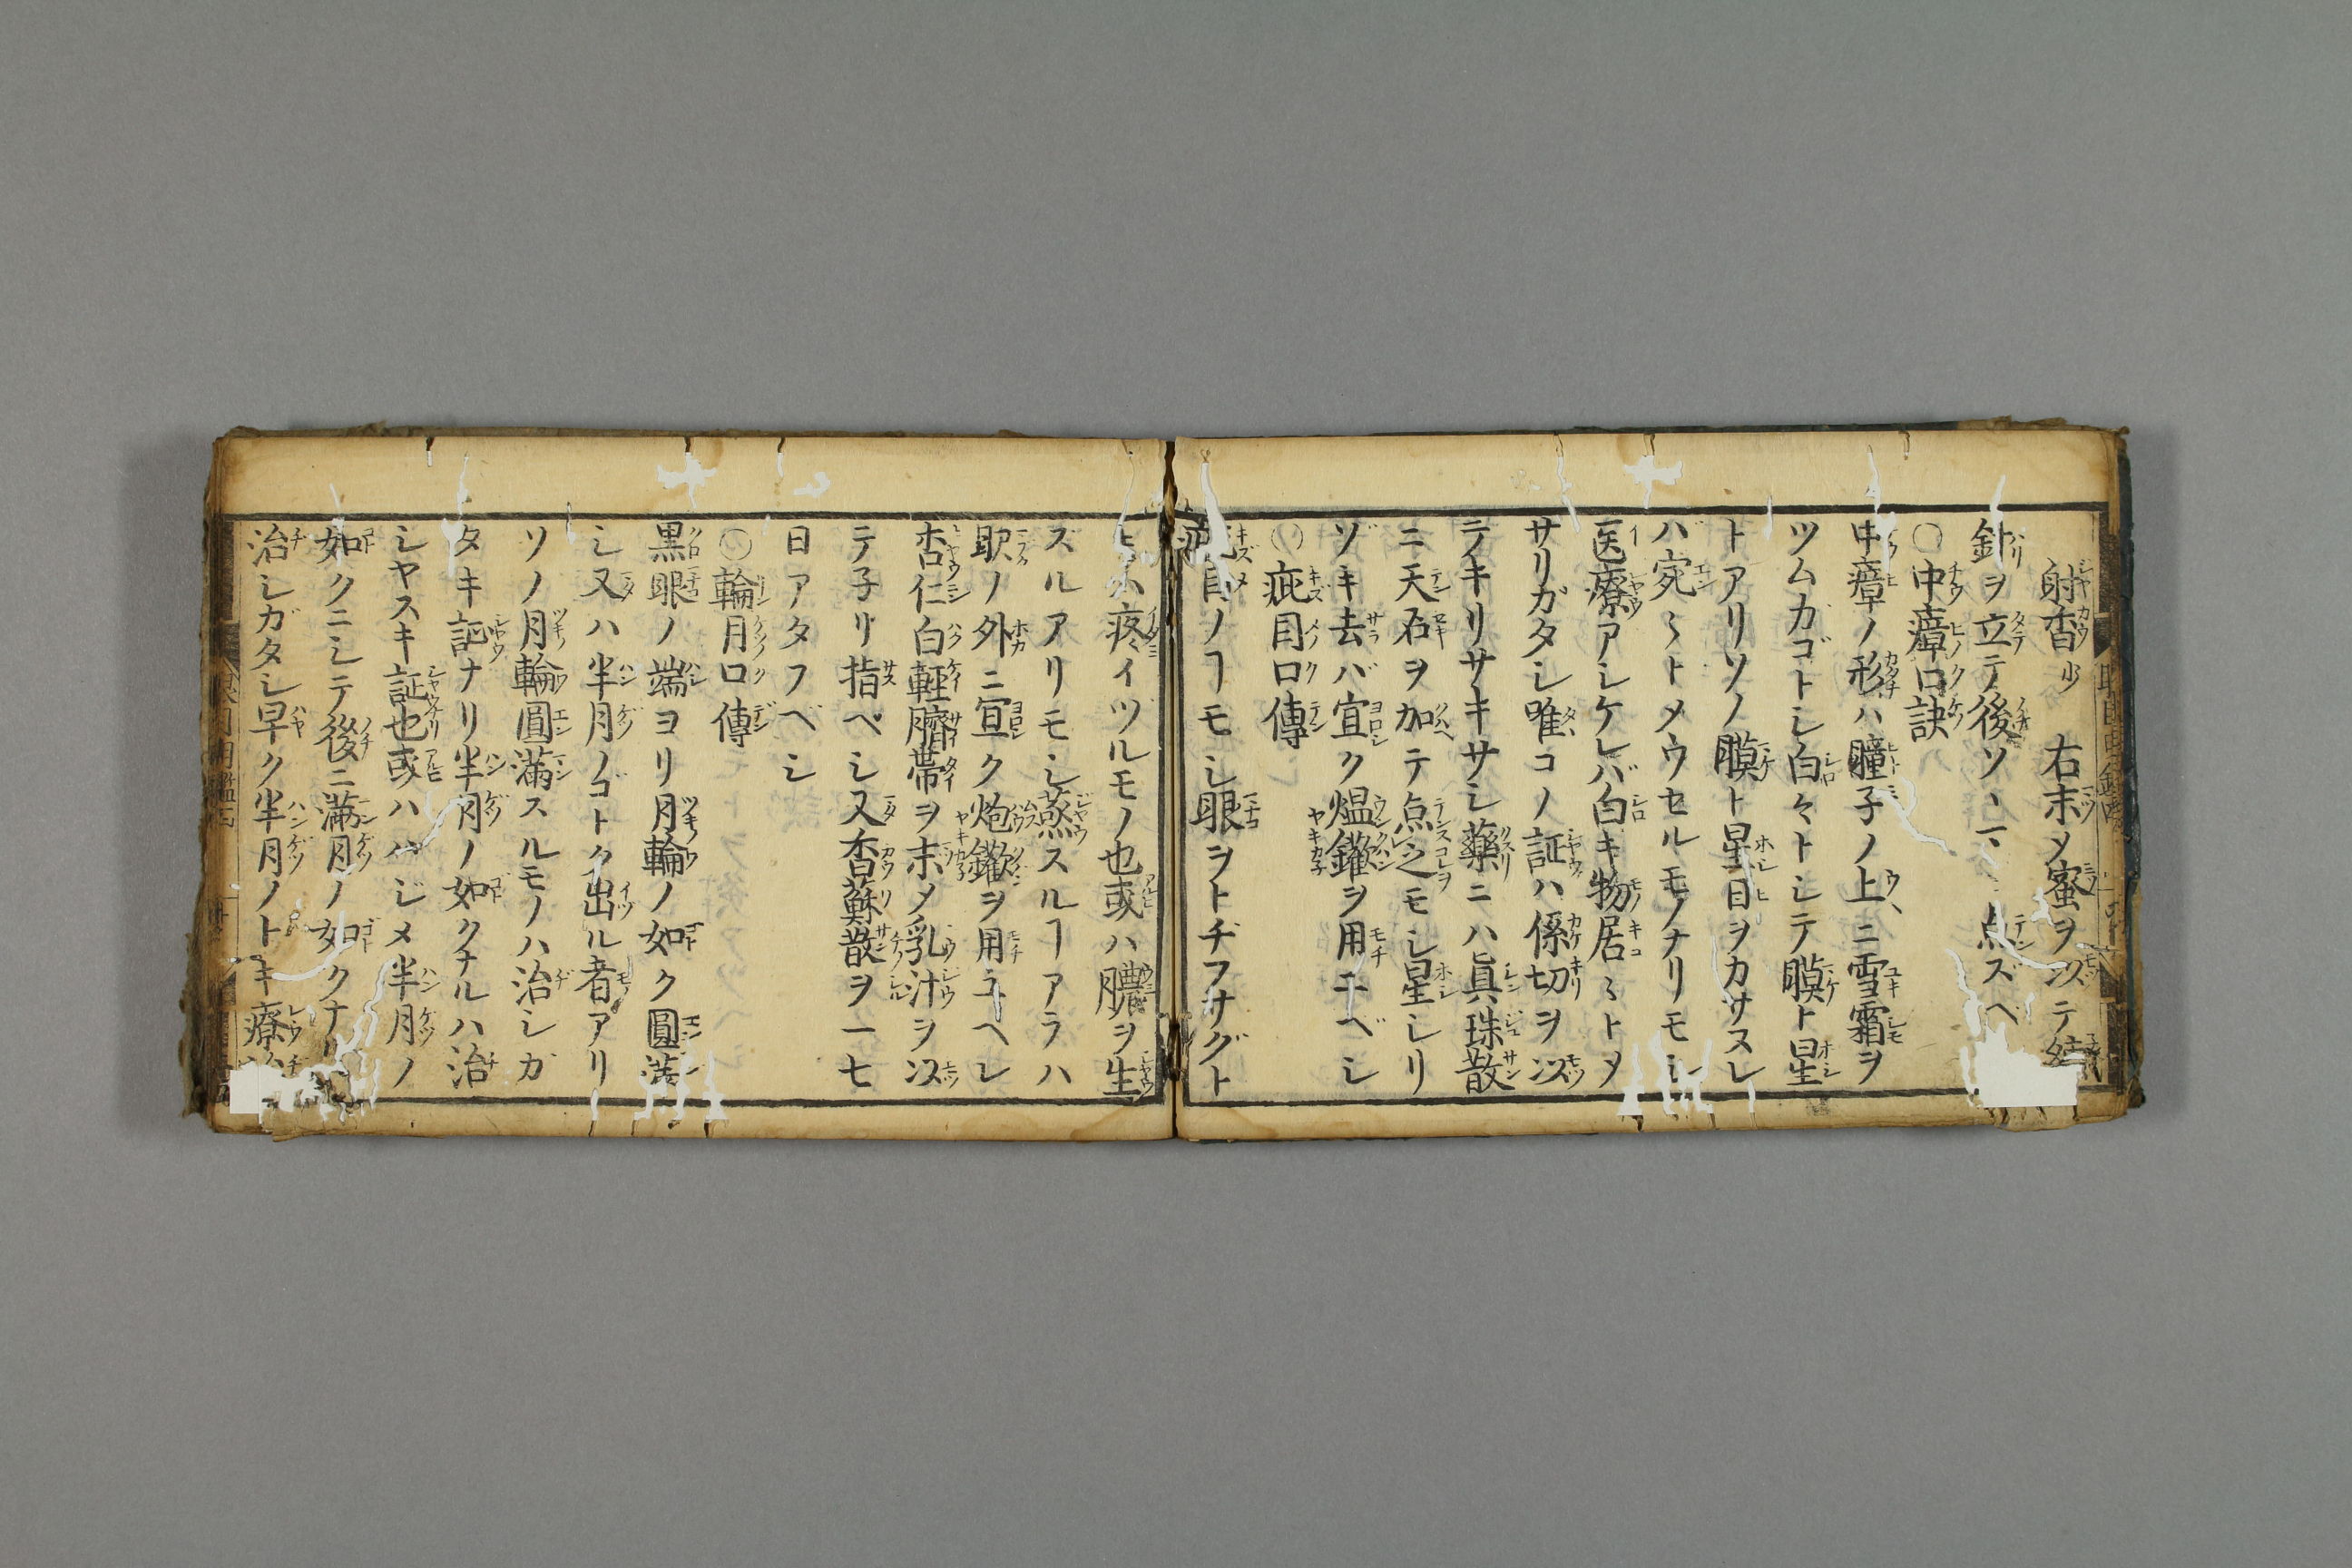 射香少　右末メ蜜ヲ以テ
針ヲ立テ後ソヽ　点ズベ
〇中瘴口訣
中瘴ノ形ハ瞳子ノ上ニ雪霜ヲ
ツムカゴトシ白々トシテ膜ト星
トアリソノ膜ト星日ヲカサスレ
バ宛〻トメウセルモノナリモシ
医療アシケレバ白キ物居〻トメ
サリガタシ唯コノ証ハ係切ヲ以
テキリサキサシ薬ニハ真珠散
ニ天石ヲ加テ点之モシ星シリ
ゾキ去バ宜ク熅鑱ヲ用ユベシ
〇疵目口傳
目ノヿモシ眼ヲトヂフサグト
疼イヅルモノ也或ハ膿ヲ生
ズルアリモシ蒸スルヿアラハ
歇ノ外ニ宜ク炮鑱ヲ用ユヘシ
杏仁白軽臍帯ヲ末メ乳汁ヲ以
テ子リ指ベシ又香蘇散ヲ一七
日アタフベシ
〇輪月口傳
黒眼ノ端ヨリ月輪ノ如ク圓満
シ又ハ半月ノゴトク出ル者アリ
ソノ月輪圓満スルモノハ治シガ
タキ証ナリ半月ノ如クナルハ治
シヤスキ証也或ハハジメ半月ノ
如クニシテ後ニ満月ノ如クナ
治シガタシ早ク半月ノトキ療